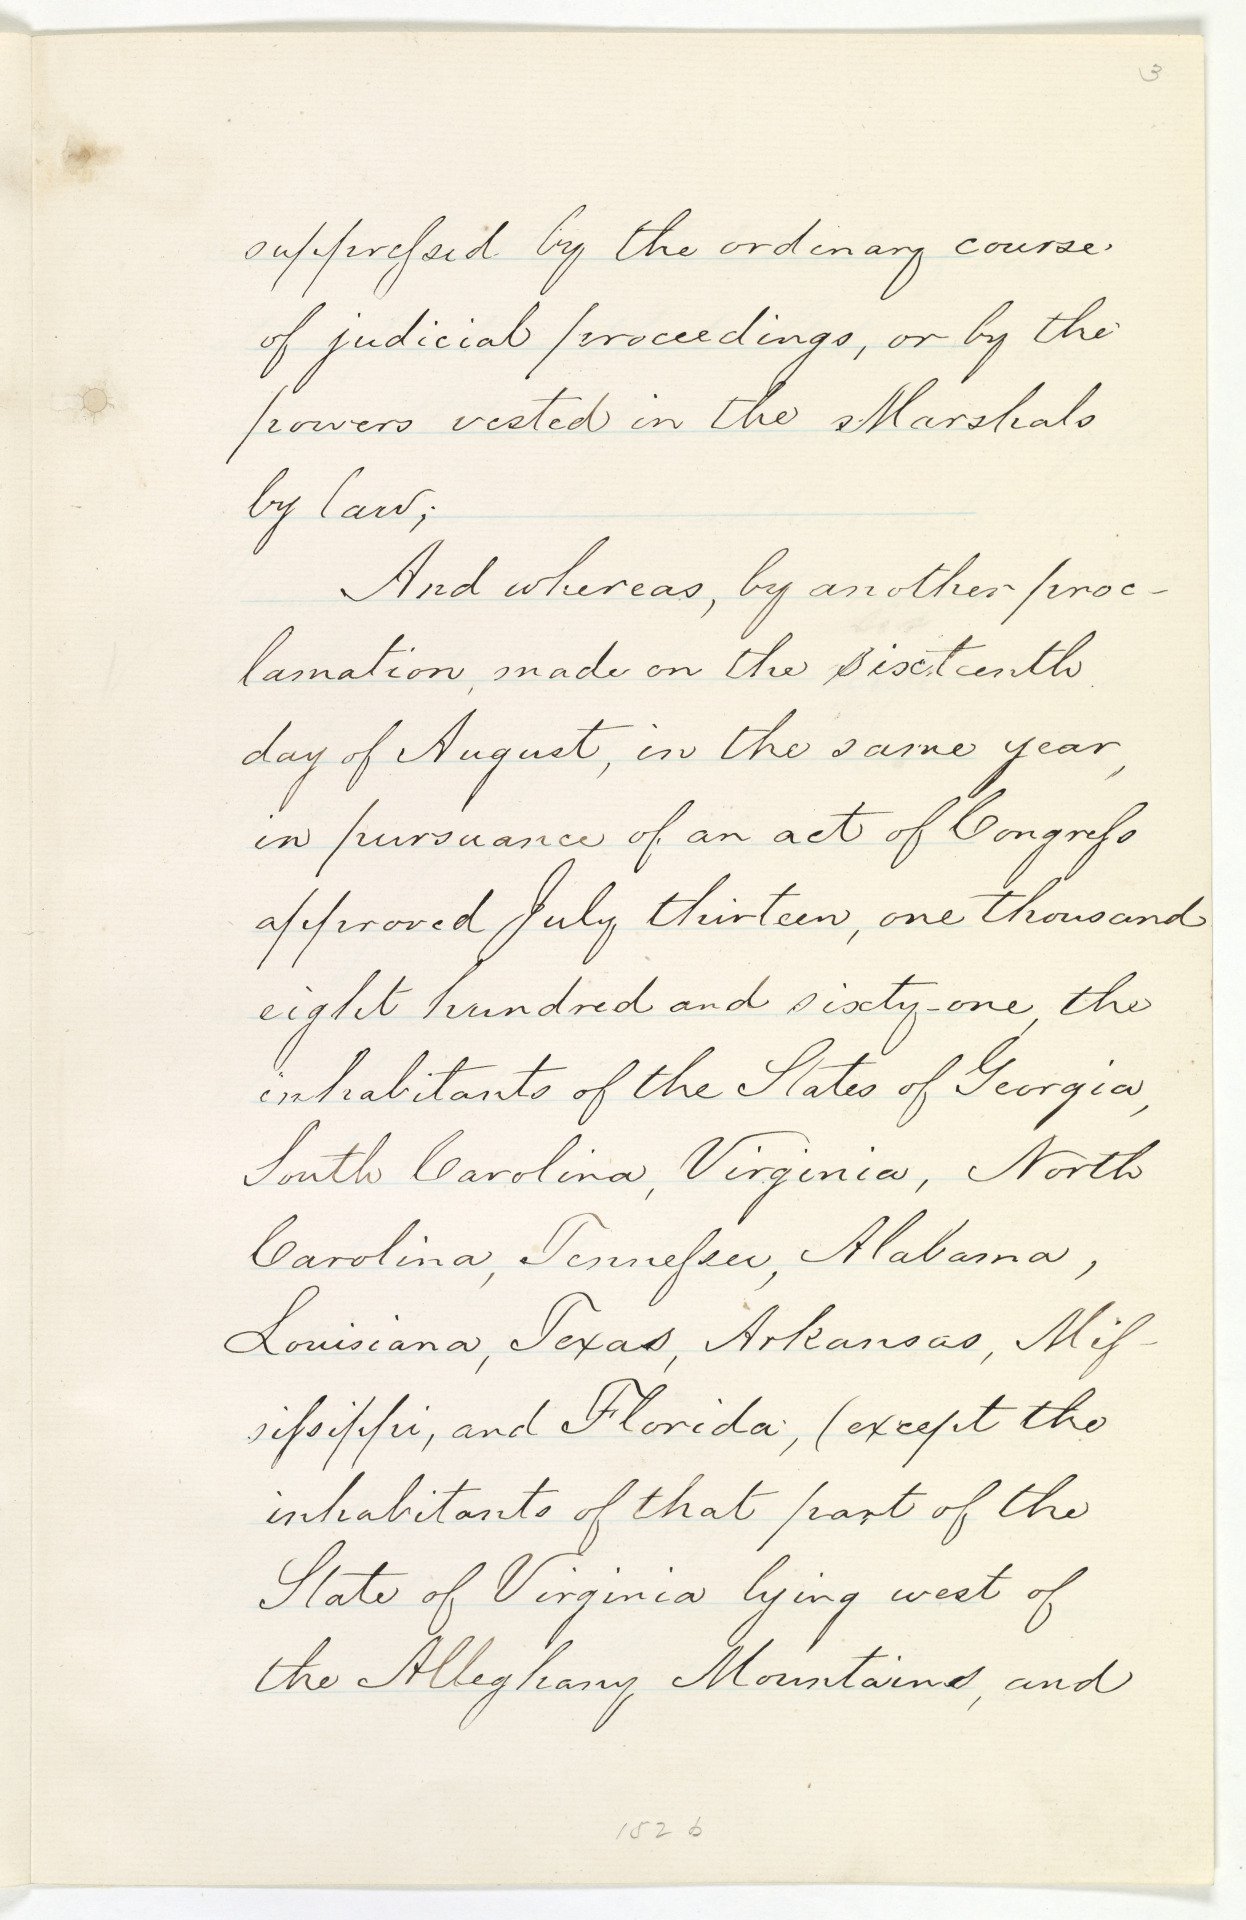 3
suppressed by the ordinary course
of judicial proceedings, or by the
powers vested in the Marshals
by law;
And whereas, by another proc-
lamation, made on the sixteenth
day of August, in the same year,
in pursuance of an act of Congress
approved July thirteen, one thousand
eight hundred and sixty-one, the
inhabitants of the States of Georgia,
South Carolina, Virginia, North
Carolina, Tennessee, Alabama,
Louisiana, Texas, Arkansas, Mis-
sissippi, and Florida, (except the
inhabitants of that part of the
State of Virginia lying west of
the Alleghany Mountains, and
182 b